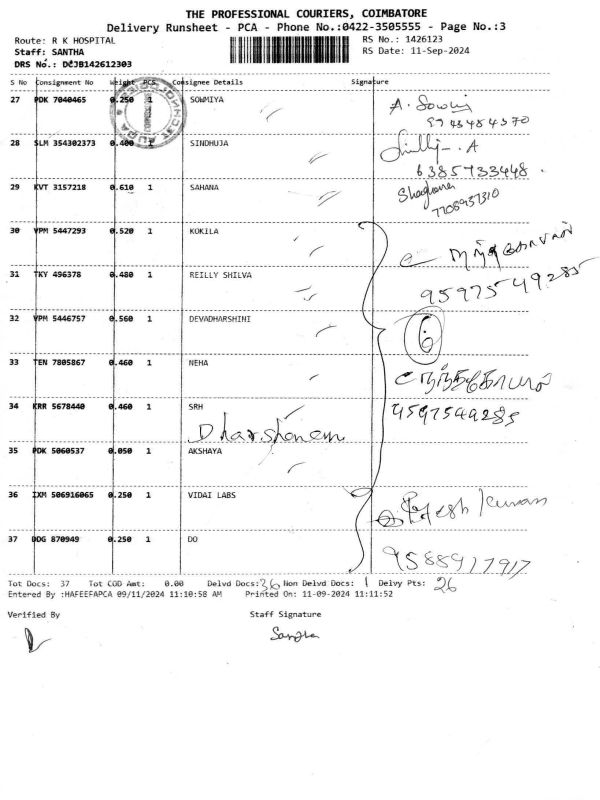 THE PROFESSIONAL COURIERS, COIMBATORE
Delivery Runsheet - PCA - Phone No.:0422-3505555 - Page No.:3
Route: R K HOSPITAL
RS No.: 1426123
Staff: SANTHA
RS Date: 11-Sep-2024
DRS No.: DCJB142612303
S No Consignment No Weight PCS Consignee Details Signature
27 PDK 7040465 0.250 1 SOWMIYA A. Sowmi
28 SLM 354302373 0.400 1 SINDHUJA
6385733448
29 KVT 3157218 0.610 1 SAHANA
7708937310
30 VPM 5447293 0.520 1 KOKILA
31 TKY 496378 0.480 1 REILLY SHILVA
9597549285
32 VPM 5446757 0.560 1 DEVADHARSHINI 6
33 TEN 7805867 0.460 1 NEHA
34 KRR 5678440 0.460 1 SRH 9597549285
35 PDK 5060537 0.050 1 AKSHAYA
36 IXM 506916065 0.250 1 VIDAI LABS
37 DOG 870949 0.250 1 DO
9588917917
Tot Docs: 37 Tot COD Amt: 0.00 Delvd Docs: 36 Non Delvd Docs: 1 Delvy Pts: 26
Entered By :HAFEEFAPCA 09/11/2024 11:10:58 AM Printed On: 11-09-2024 11:11:52
Verified By Staff Signature
Santha